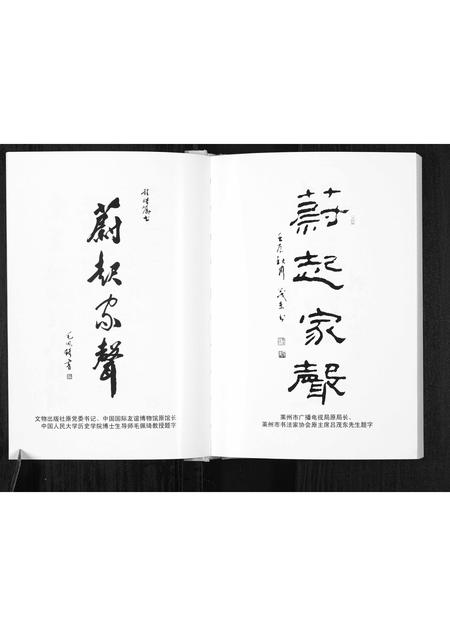 蔚起家聲
毛佩琦書
文物出版社原党委书记、中国国际友谊博物馆原馆长
中国人民大学历史学院博士生导师毛佩琦教授题字
蔚起家聲
壬辰秋月 茂东书
莱州市广播电视局原局长、
莱州市书法家协会原主席吕茂东先生题字